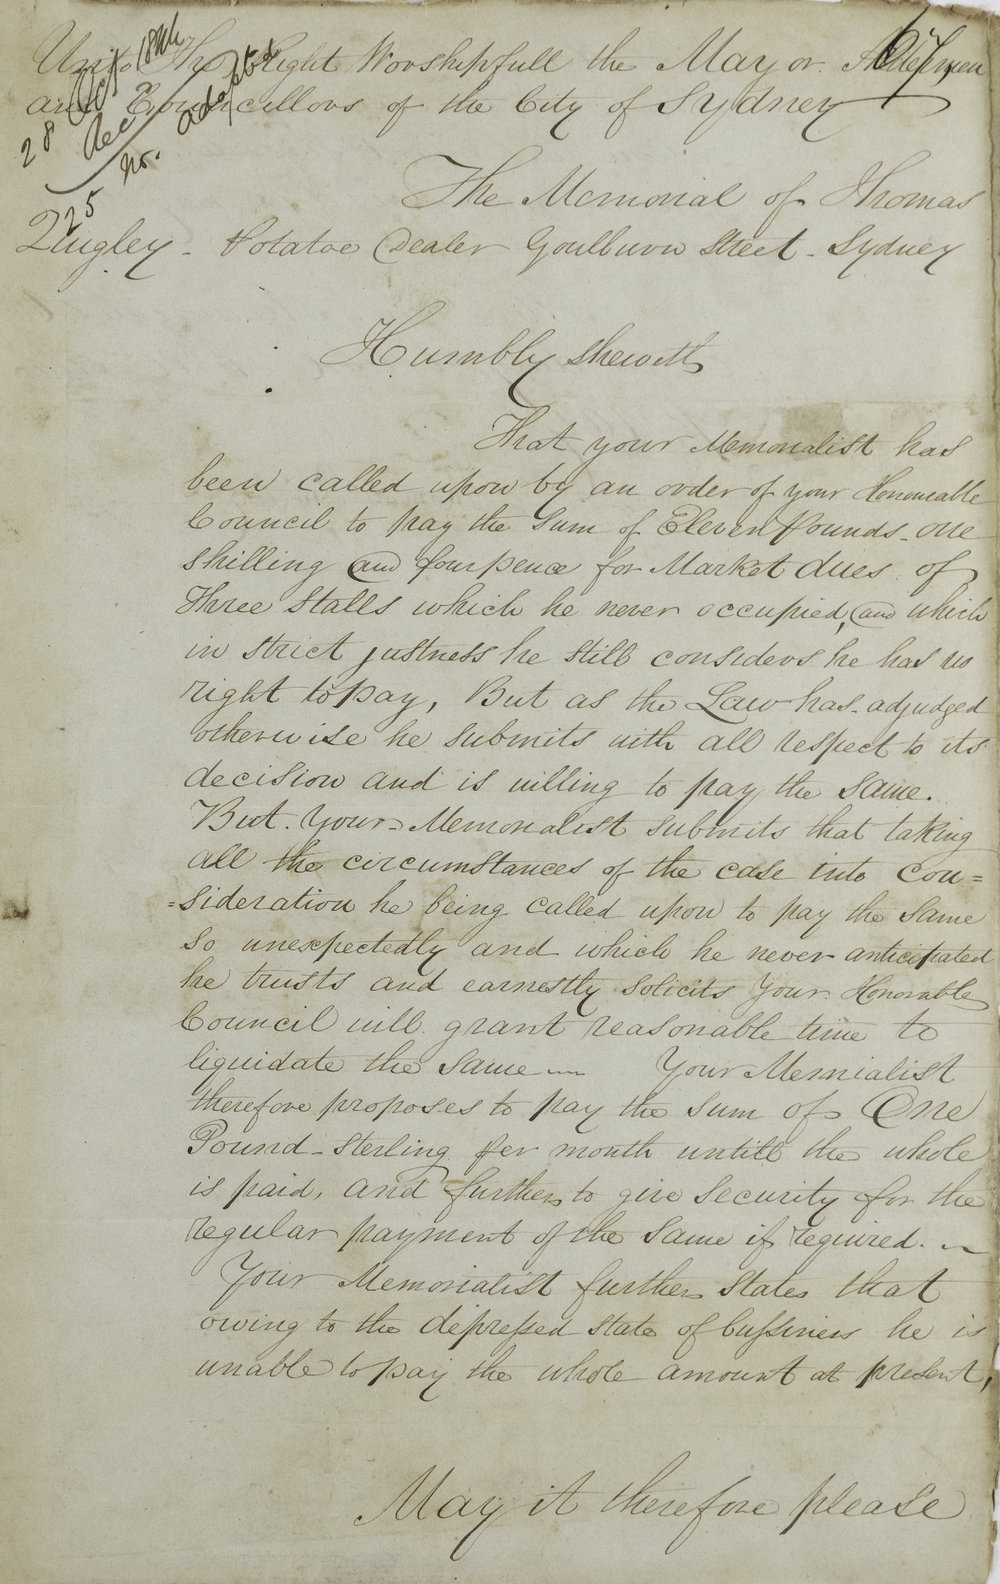 Unto The Right Worshipfull the Mayor Aldermen
and Councillors of the City of Sydney
28 Oct 1844
Rec
no. adopted
225
167
The Memorial of Thomas
Quigley - Potatoe Dealer Goulburn Street - Sydney
Humbly sheweth
That your Memorialist has
been called upon by an order of your Honourable
Council to pay the Sum of Eleven Pounds - one
shilling and fourpence for Market dues of
Three Stalls which he never occupied, and which
in strict justness he still considers he has no
right to pay, But as the Law has adjudged
otherwise he submits with all respect to its
decision and is willing to pay the same.
But Your Memorialist submits that taking
all the circumstances of the case into con=
=sideration he being called upon to pay the same
so unexpectedly and which he never anticipated
he trusts and earnestly solicits Your Honorable
Council will grant reasonable time to
liquidate the same — Your Memrialist
therefore proposes to pay the sum of One
Pound - Sterling per month untill the whole
is paid, and further to give security for the
regular payment of the same if required. ~
Your Memorialist further States that
owing to the depressed state of bussiness he is
unable to pay the whole amount at present,
May it therefore please